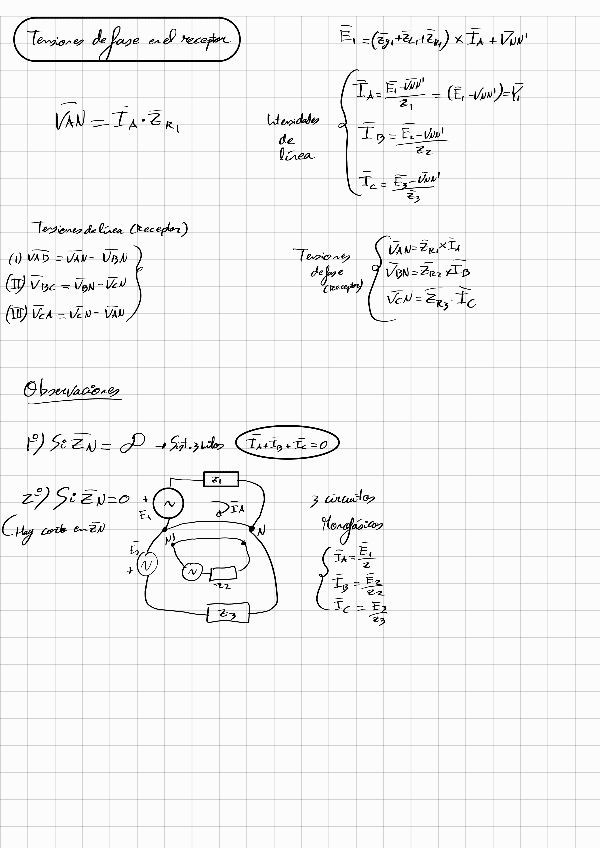 Tensiones de fase en el receptor
E̅₁ = (z̅g₁ + z̅L₁ + z̅R₁) × I̅A + V̅NN'
V̅AN = I̅A · Z̅R₁
Intensidades de línea
I̅A = (E̅₁ - V̅NN')/Z₁ = (E̅₁ - V̅NN') = Y̅₁
I̅B = (E̅₂ - V̅NN')/Z₂
I̅C = (E̅₃ - V̅NN')/Z̅₃
Tensiones de línea (Receptor)
(I) V̅AB = V̅AN - V̅BN
(II) V̅BC = V̅BN - V̅CN
(III) V̅CA = V̅CN - V̅AN
Tensiones de fase (receptor)
V̅AN = Z̅R₁ × I̅A
V̅BN = Z̅R₂ × I̅B
V̅CN = Z̅R₃ · I̅C
Observaciones
1º) Si Z̅N = ∞ → Sist. 3 hilos I̅A + I̅B + I̅C = 0
2º) Si Z̅N = 0
(Hay corto en Z̅N
+ E̅₁
Z₁
I̅A
N'
N
E̅₂
+
Z₂
Z₃
3 circuitos
Monofásicos
I̅A = E̅₁/Z
I̅B = E̅₂/Z₂
I̅C = E̅₃/Z₃